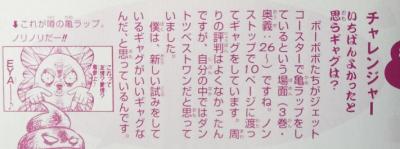 チャレンジャー
いちばんよかったと
思うギャグは？
ボーボボたちがジェット
コースターで亀ラップをし
ているという場面（3巻・
奥義：26〜）ですね。ノン
ストップで10ページに渡っ
てギャグをしています。周
りの評判はよくなかったん
ですが、自分の中ではダン
トツベストワンだと思って
いました。
僕は、新しい試みをして
いるギャグがいいギャグな
んだ、と思っているんです。
◆これが噂の亀ラップ。
ノリノリだー!!